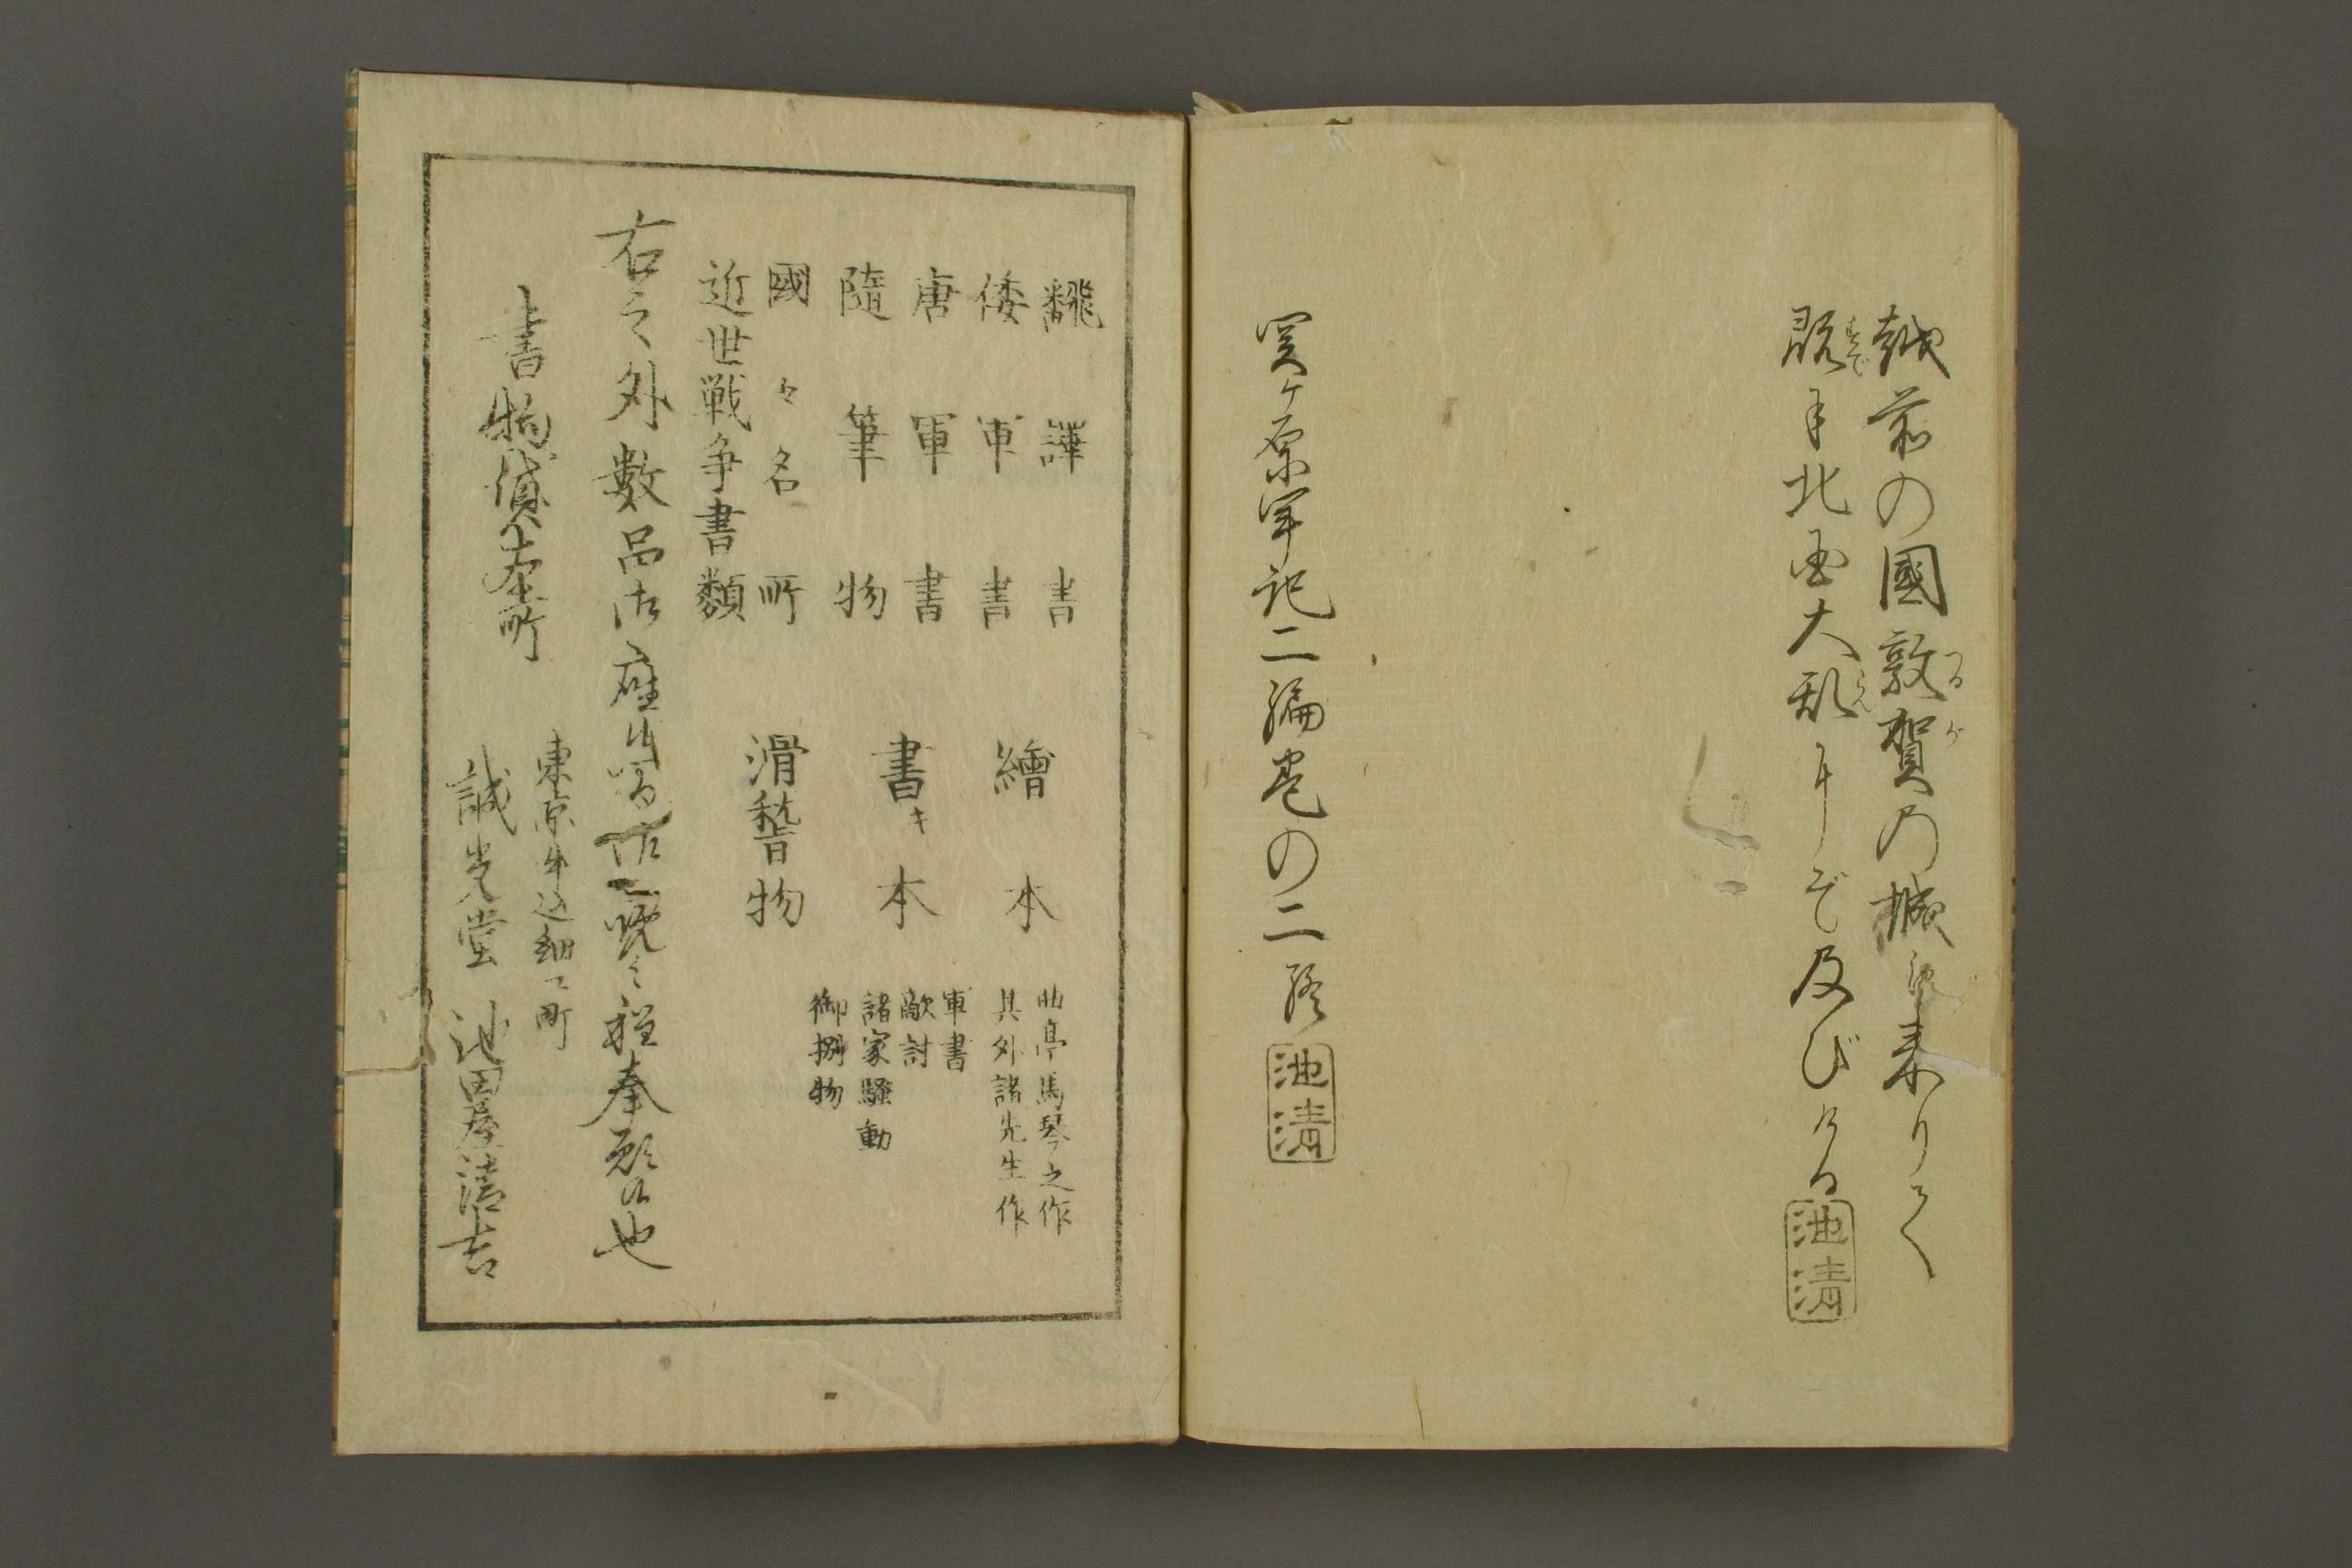 越前の國敦賀乃城に来りて
つるが
既に北国大乱にぞ及びける
すで
らん
池清
関ヶ原軍記二編巻の二終
池清
飜譯書
倭軍書
唐軍書
隨筆物
國々名所
近世戦争書類
繪本
曲亭馬琴之作
其外諸先生作
書キ本
軍書
敵討
諸家騒動
御捌物
滑稽物
右之外數品御座候間御一覧之程奉願候也
書物貸本所
東京牛込細工町
誠光堂 池田屋清吉